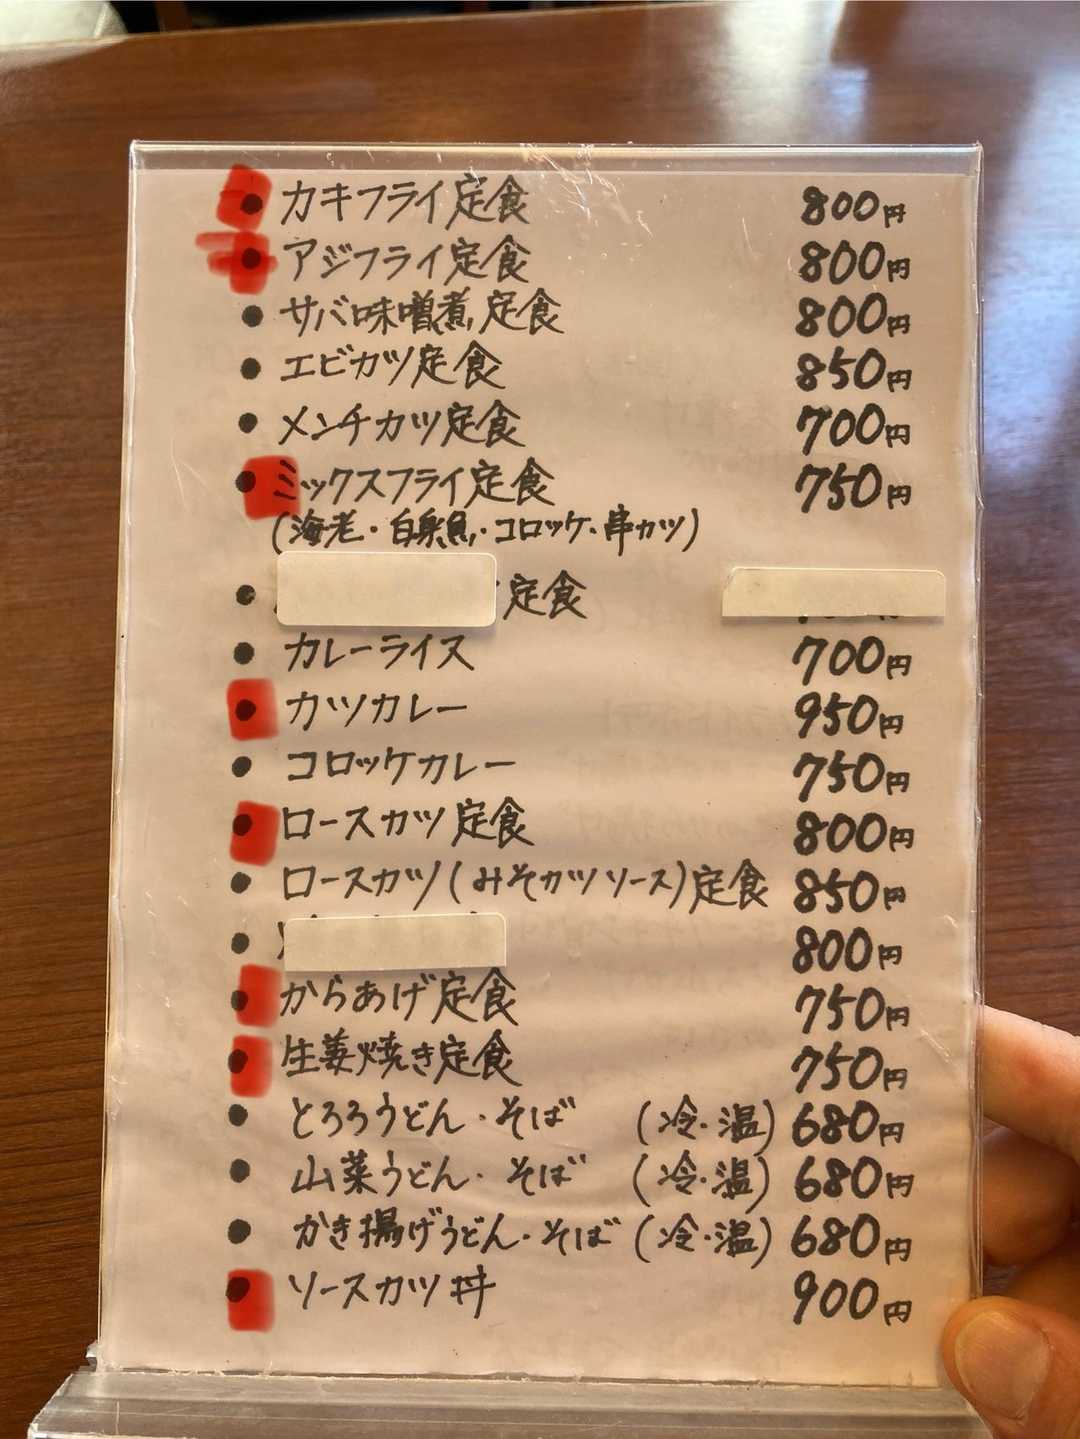 ● カキフライ定食 800円
● アジフライ定食 800円
● サバ味噌煮定食 800円
● エビカツ定食 850円
● メンチカツ定食 700円
● ミックスフライ定食 750円
(海老・白身魚・コロッケ・串カツ)
● 定食
● カレーライス 700円
● カツカレー 950円
● コロッケカレー 750円
● ロースカツ定食 800円
● ロースカツ(みそカツソース)定食 850円
● 800円
● からあげ定食 750円
● 生姜焼き定食 750円
● とろろうどん・そば (冷・温) 680円
● 山菜うどん・そば (冷・温) 680円
● かき揚げうどん・そば (冷・温) 680円
● ソースカツ丼 900円